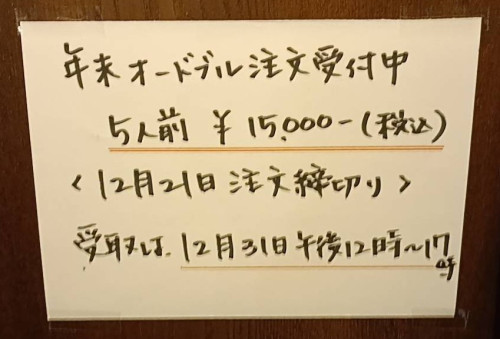 年末オードブル注文受付中
5人前 ¥15,000-(税込)
<12月21日 注文締切り>
受取は、12月31日午後12時~17時